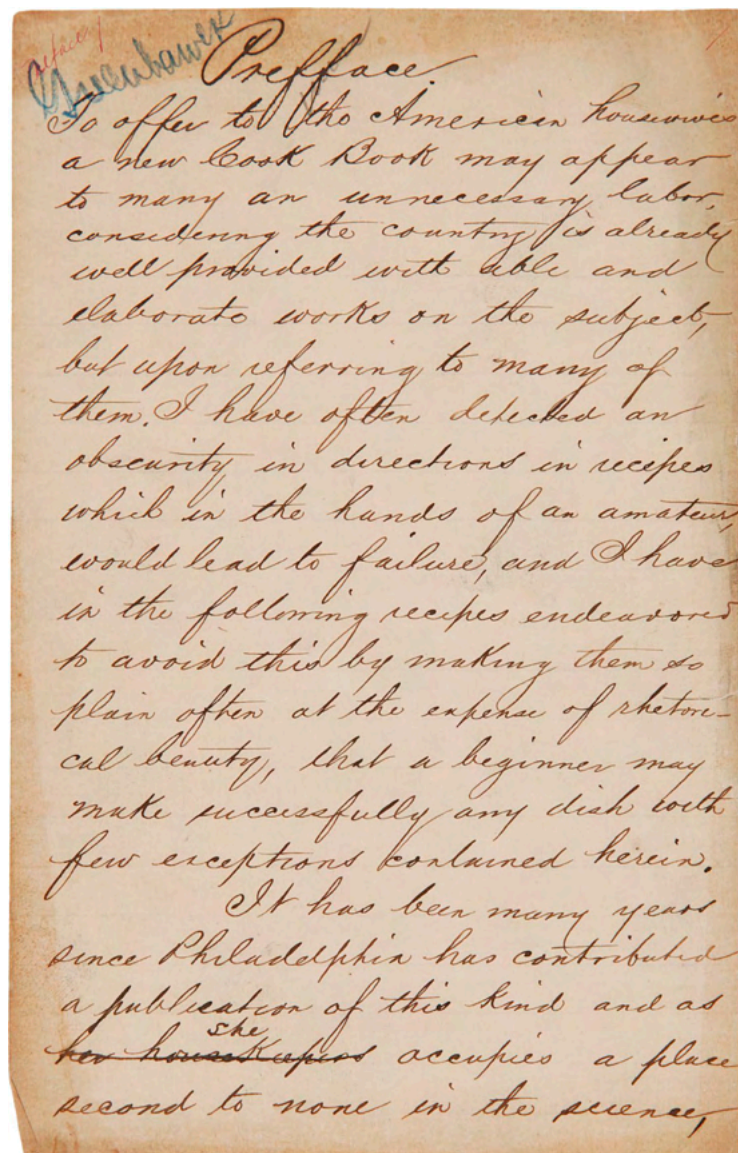 Prefface.
To offer to the American housewives
a new Cook Book may appear
to many an unnecessary labor,
considering the country is already
well provided with able and
elaborate works on the subject,
but upon referring to many of
them. I have often detected an
obscurity in directions in recipes
which in the hands of an amateur,
would lead to failure, and I have
in the following recipes endeavored
to avoid this by making them so
plain often at the expense of rhetori-
cal beauty, that a beginner may
make successfully any dish with
few exceptions contained herein.
It has been many years
since Philadelphia has contributed
a publication of this kind and as
she
her housekeepers occupies a place
second to none in the science,